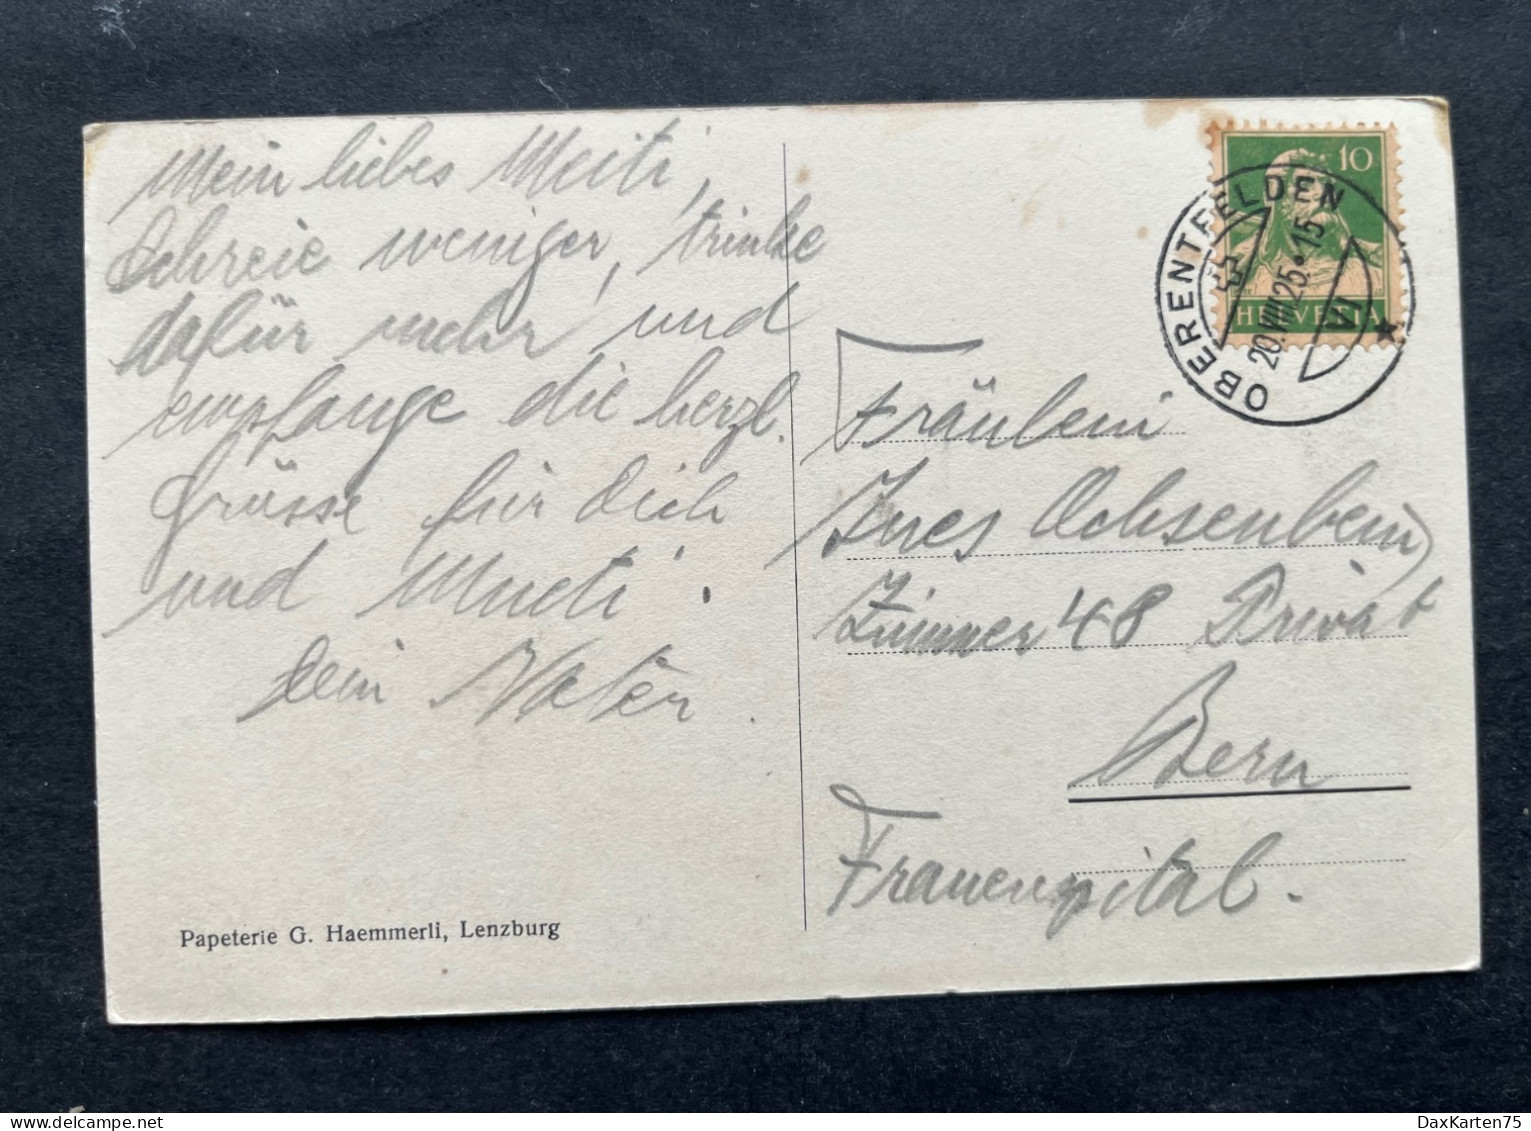 Mein liebes Meiti,
Schreie weniger, trinke
dafür mehr und
empfange die herzl.
Grüsse für dich
und Mueti.
dein Vater.
Papeterie G. Haemmerli, Lenzburg
10
HELVETIA
OBERENTFELDEN
20.VIII.25•15
VI
Fräulein
Ines Ochsenbein
Zimmer 48 Privat
Bern
Frauenspital.
DaxKarten75